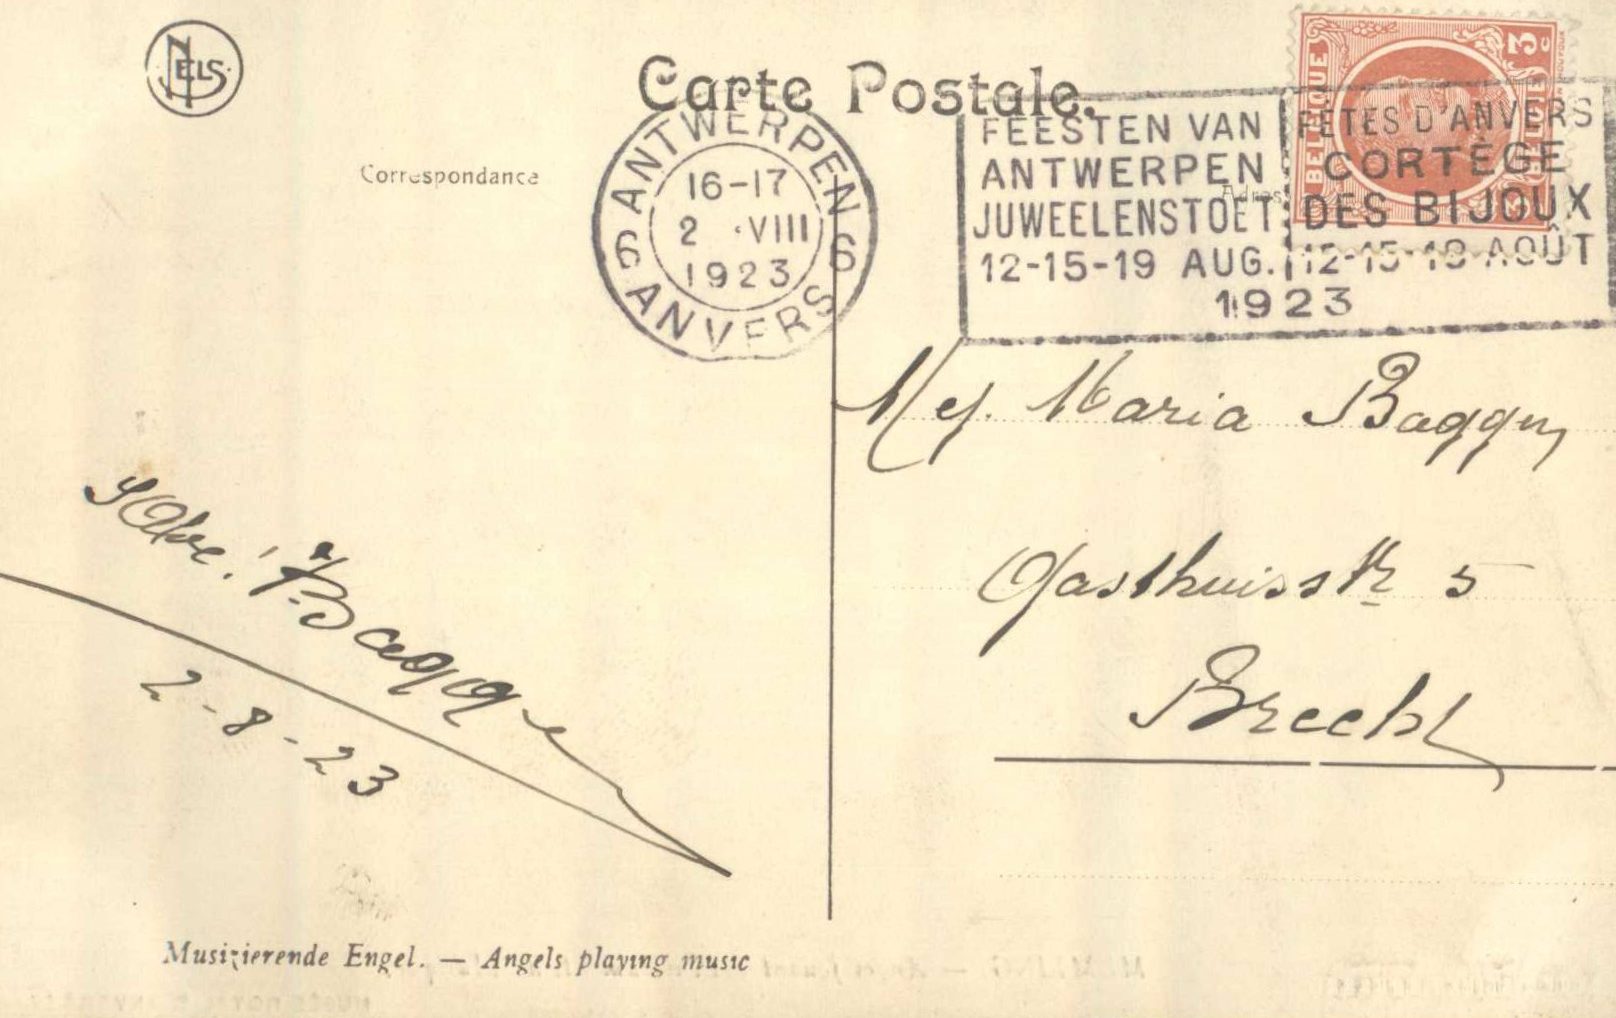 NELS
Carte Postale.
Correspondance
Adres
ANTWERPEN
6 6
16-17
2 VIII
1923
ANVERS
FEESTEN VAN
ANTWERPEN
JUWEELENSTOET
12-15-19 AUG.
FETES D'ANVERS
CORTÈGE
DES BIJOUX
12-15-19 AOÛT
1923
BELGIQUE 3 C
BELGIË 3
Mej. Maria Baggen
Gasthuisstr 5
Brecht
Baggen
2-8-23
Musizierende Engel. — Angels playing music
MEMLING